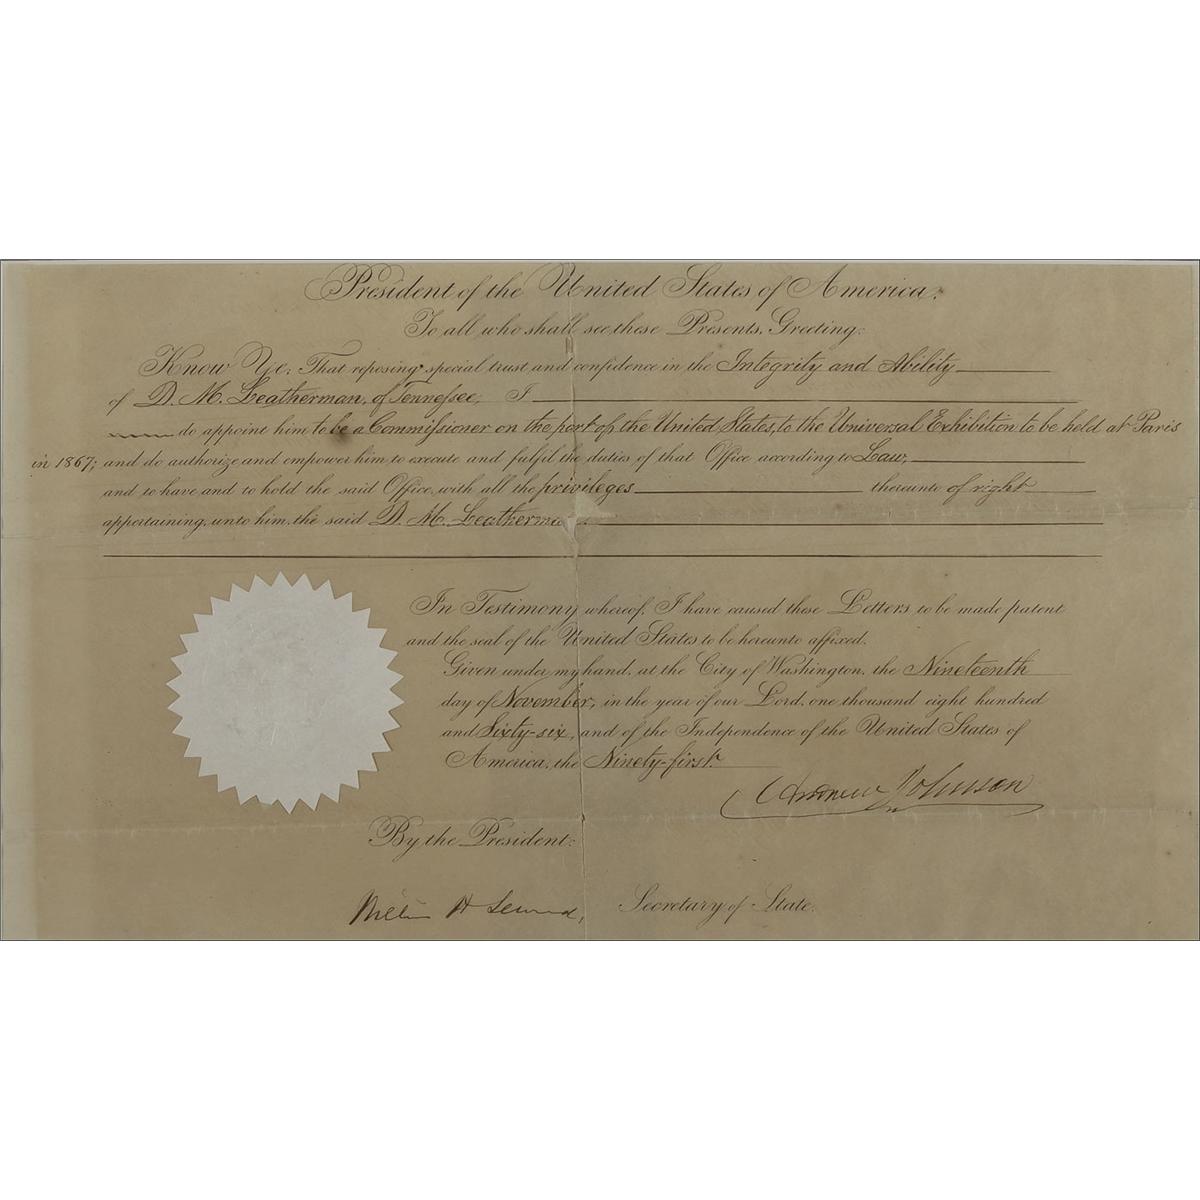 President of the United States of America.
To all who shall see these Presents, Greeting:
Know Ye; That reposing special trust and confidence in the Integrity and Ability
of D. M. Leatherman, of Tennessee, I
do appoint him to be a Commissioner on the part of the United States, to the Universal Exhibition to be held at Paris
in 1867; and do authorize and empower him to execute and fulfil the duties of that Office according to Law,
and to have and to hold the said Office, with all the privileges thereunto of right
appertaining, unto him, the said D. M. Leatherman.
In Testimony whereof, I have caused these Letters to be made patent
and the seal of the United States to be hereunto affixed.
Given under my hand, at the City of Washington, the Nineteenth
day of November, in the year of our Lord, one thousand eight hundred
and Sixty-six, and of the Independence of the United States of
America, the Ninety-first.
Andrew Johnson
By the President:
William H Seward, Secretary of State.